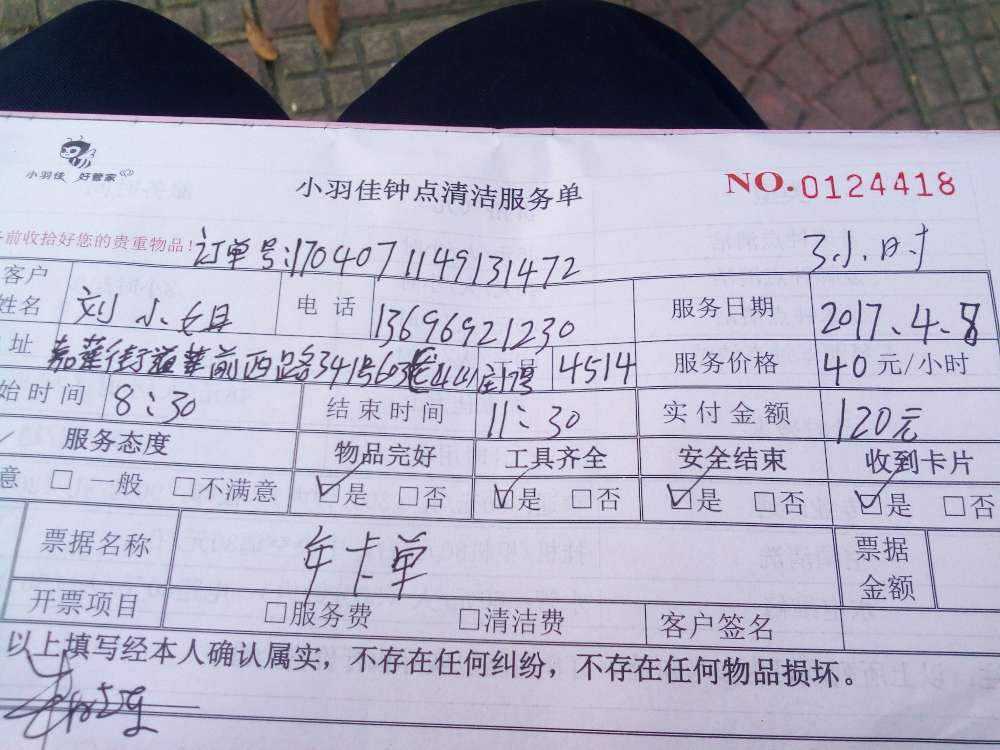 小羽佳 好管家
小羽佳钟点清洁服务单
NO.0124418
前收拾好您的贵重物品!
订单号:1704071149131472
3小时
客户姓名 刘小姐 电话 13696921230 服务日期 2017.4.8
址 嘉莲街道莲前西路341号603 4514 服务价格 40元/小时
始时间 8:30 结束时间 11:30 实付金额 120元
服务态度 物品完好 工具齐全 安全结束 收到卡片
意 □一般 □不满意 ☑是 □否 ☑是 □否 ☑是 □否 ☑是 □否
票据名称 年卡单 票据金额
开票项目 □服务费 □清洁费 客户签名
以上填写经本人确认属实，不存在任何纠纷，不存在任何物品损坏。